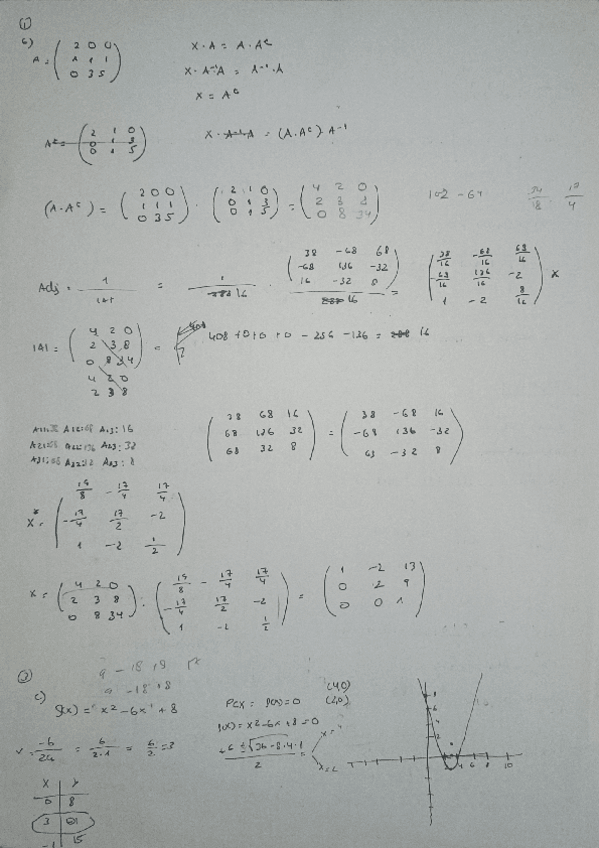 ①
b)
A = ( 2 0 0
1 1 1
0 3 5 )
X · A = A · Aᵗ
X · A⁻¹A = A⁻¹ · A
X = Aᵗ
Aᵗ = ( 2 1 0
0 1 3
0 1 5 )
X · A⁻¹A = (A·Aᵗ) A⁻¹
(A·Aᵗ) = ( 2 0 0
1 1 1
0 3 5 ) · ( 2 1 0
0 1 3
0 1 5 ) = ( 4 2 0
2 3 8
0 8 34 )
102 - 64
Adj = 1/|A| = 1/16 · ( 38 -68 68
-68 136 -32
16 -32 8 ) / 16 = ( 38/16 -68/16 68/16
-68/16 136/16 -2
1 -2 8/16 ) X
|A| = ( 4 2 0
2 3 8
0 8 34 )
4 2 0
2 3 8
= 408 + 0 + 0 - 0 - 256 - 136 = 16
A13: 16
A23: 32
A33: 8
( 38 68 16
68 136 32
68 32 8 ) = ( 38 -68 16
-68 136 -32
68 -32 8 )
X* = ( 19/8 -17/4 17/4
-17/4 17/2 -2
1 -2 1/2 )
X = ( 4 2 0
2 3 8
0 8 34 ) · ( 19/8 -17/4 17/4
-17/4 17/2 -2
1 -2 1/2 ) = ( 1 -2 13
0 2 9
0 0 1 )
②
9 - 18 + 9
9 - 18 + 8
c)
f(x) = x² - 6x + 8
PCX = f(x) = 0
(4,0)
(2,0)
f(x) = x² - 6x + 8 = 0
V = -6/2a = 6/2·1 = 6/2 = 3
+6 ± √36 - 8·4·1 / 2 =
x = 4
x = 2
x y
0 8
3
-1 15
2 4 6 8 10